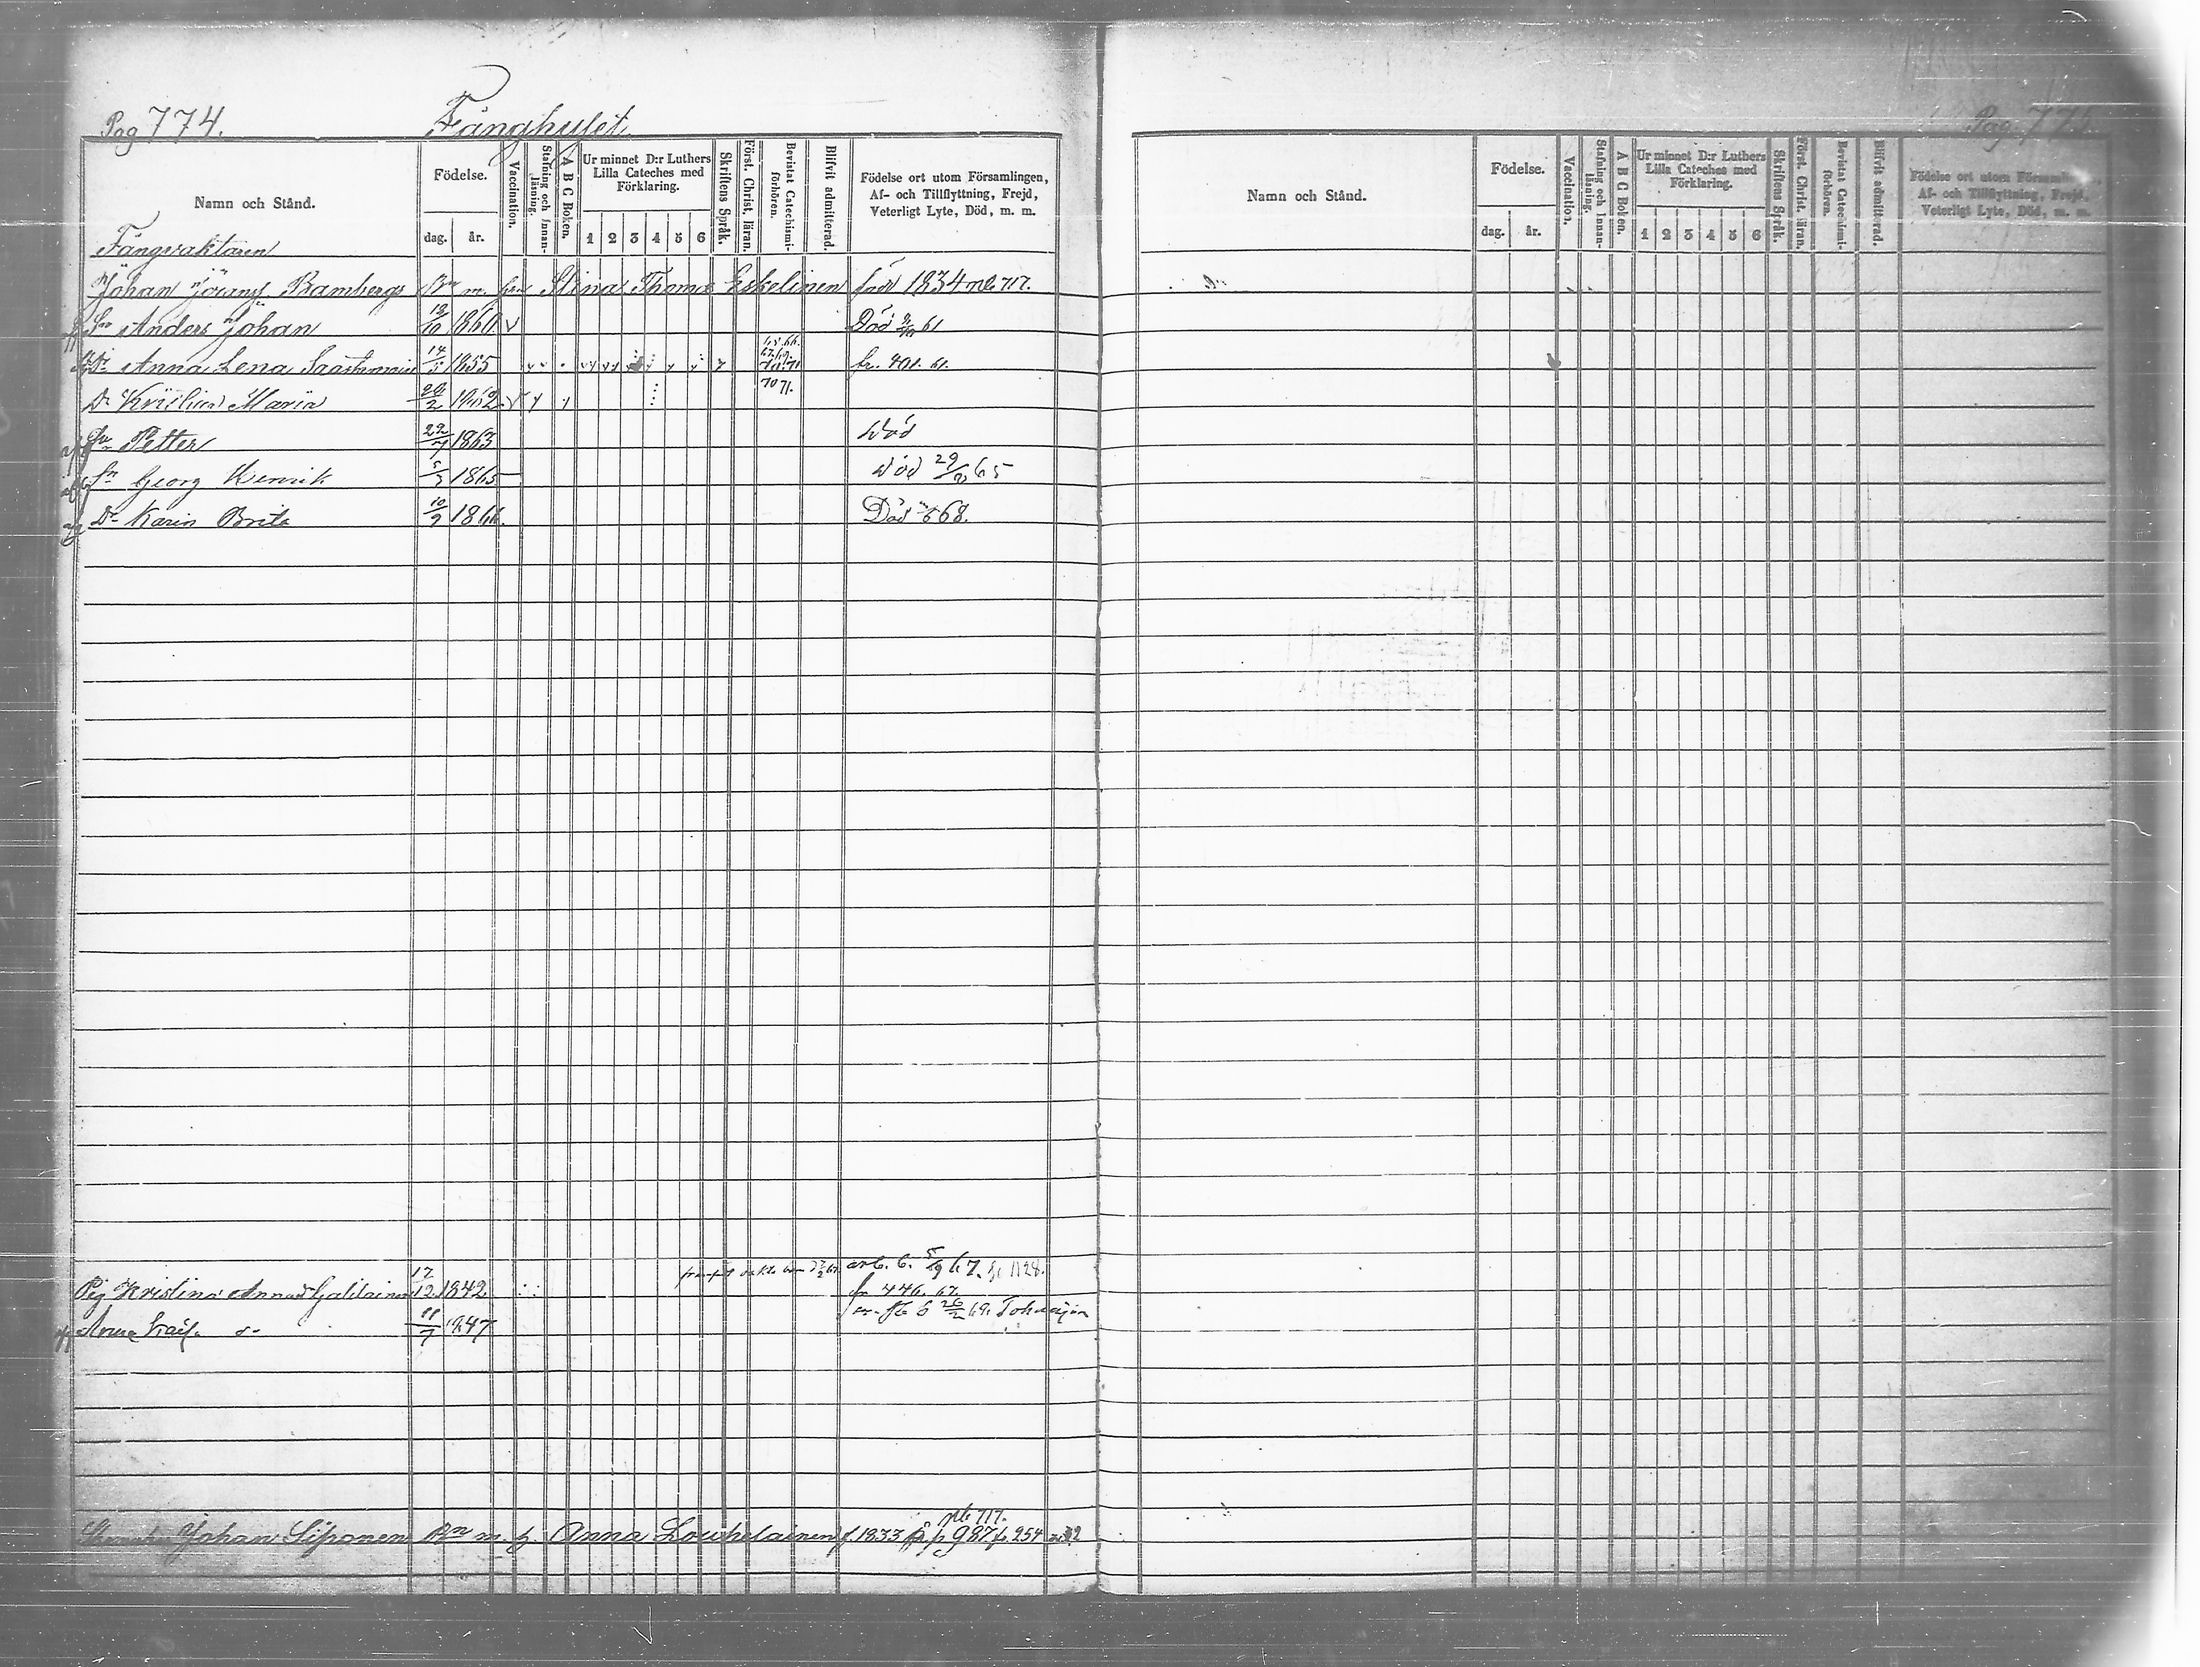 Pag 774.
Fånghuset
Namn och Stånd.
Födelse.
dag.
år.
Vaccination.
Stafning och Innan-
läsning.
A B C Boken.
Ur minnet D:r Luthers
Lilla Cateches med
Förklaring.
1 2 3 4 5 6
Skriftens Språk.
Först. Christ. läran.
Bevistat Catechismi-
förhören.
Blifvit admitterad.
Födelse ort utom Församlingen,
Af- och Tillflyttning, Frejd,
Veterligt Lyte, Död, m. m.
Fångvaktaren
Johan Bamberg Bn m. Stina Thomas Eskelinen född 1834 717.
Sn Anders Johan 10 1860 v Död 61
Dr Anna Lena 14/5 1855 fr. 491. 61.
Dr Maria 2 1862 70 71.
Sn Petter 22/7 1863 död
Sn Georg Henrik 5/3 1865 död 29 65
Dr Karin Brita 10/9 1866. Död 68.
arb. b. 5/9 67. 1128.
Pig Kristina 17/12 1842 fr 446. 67.
Anna 11/7 1847 69. Tohmajärvi
717.
Johan Siponen Bn m. h. Anna Louhelainen f. 1833 p 987 fr. 254
Pag. 775.
Namn och Stånd.
Födelse.
dag.
år.
Vaccination.
Stafning och Innan-
läsning.
A B C Boken.
Ur minnet D:r Luthers
Lilla Cateches med
Förklaring.
1 2 3 4 5 6
Skriftens Språk.
Först. Christ. läran.
Bevistat Catechismi-
förhören.
Blifvit admitterad.
Födelse ort utom Församlingen,
Af- och Tillflyttning, Frejd,
Veterligt Lyte, Död, m. m.